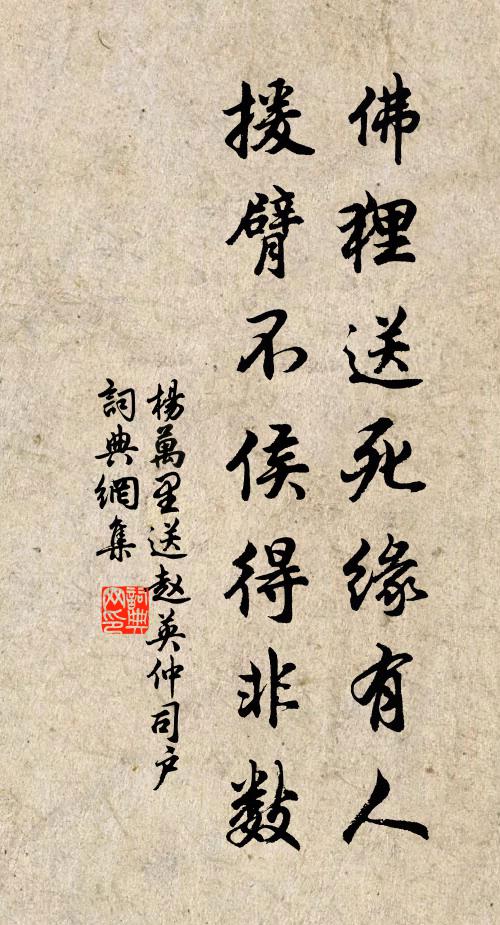 佛狸送死緣有人
援臂不侯得非數
楊萬里送赵英仲司户
詞典網集
詞典网印